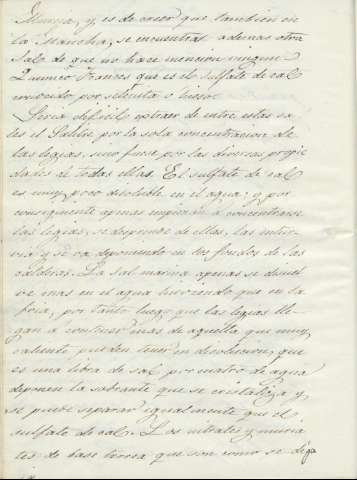 Murcia, y, es de creer que tambien en
la Mancha, se encuentra ademas otra
Sal de que no hace mencion ningun
Quimico Frances que es el sulfato de cal
conocido por selenita o hieso.
Seria dificil extraer de entre estas sa
les el Salitre por la sola concentracion de
las legias, sino fuera por las diversas propie
dades de todas ellas. El sulfato de cal
es muy poco disoluble en el agua; y por
consiguiente apenas empiezan à concentrarse
las legias, se desprende de ellas, las entur
via y se va deponiendo en los fondos de las
calderas. La Sal marina apenas se disuel
ve mas en el agua hirviendo que en la
fria, por tanto luego que las legias lle
gan a contener mas de aquella que muy
caliente pueden tener en disolucion, que
es una libra de sal por cuatro de agua
deponen la sobrante que se cristaliza y
se puede separar igualmente que el
sulfato de cal. Los nitrates y muria
tes de base terrea que son como se diga